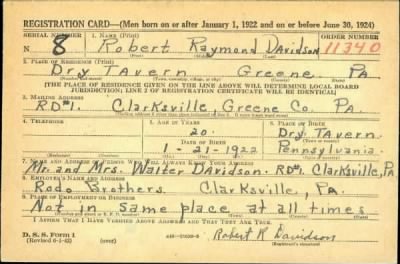 REGISTRATION CARD—(Men born on or after January 1, 1922 and on or before June 30, 1924)
SERIAL NUMBER 1. NAME (Print) ORDER NUMBER
N 8 Robert Raymond Davidson 11340
2. PLACE OF RESIDENCE (Print)
Dry Tavern Greene PA
(THE PLACE OF RESIDENCE GIVEN ON THE LINE ABOVE WILL DETERMINE LOCAL BOARD
JURISDICTION; LINE 2 OF REGISTRATION CERTIFICATE WILL BE IDENTICAL)
3. MAILING ADDRESS
RD#1. Clarksville, Greene Co. PA.
4. TELEPHONE 5. AGE IN YEARS 6. PLACE OF BIRTH
20. Dry Tavern
DATE OF BIRTH
1-21-1922 Pennsylvania
7. NAME AND ADDRESS OF PERSON WHO WILL ALWAYS KNOW YOUR ADDRESS
Mr. and Mrs. Walter Davidson. RD#1. Clarksville, PA
8. EMPLOYER'S NAME AND ADDRESS
Brothers Clarksville, PA.
9. PLACE OF EMPLOYMENT OR BUSINESS
Not in same place at all times
I AFFIRM THAT I HAVE VERIFIED ABOVE ANSWERS AND THAT THEY ARE TRUE.
D. S. S. Form 1
(Revised 6-1-42) (over) Robert R Davidson
(Registrant's signature)